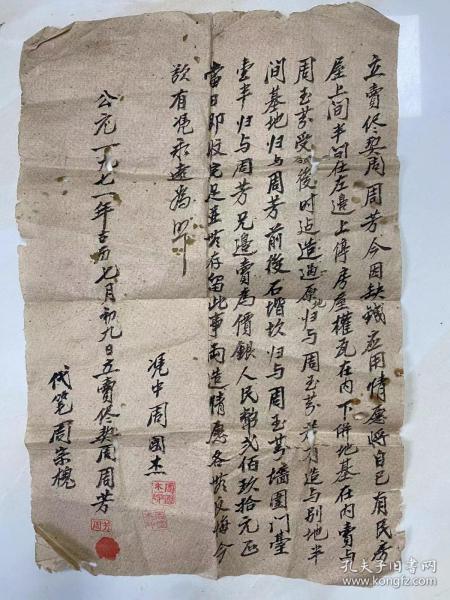 立賣佟契周周芳今因缺錢应用情愿將自己有民房
屋上间半间在左邊上停房屋權瓦在内下併地基在内賣与
周玉芬受後时造造过原归与周玉芬若有造与别地半
间基地归与周芳前後石堦坎归与周玉芬墙围门臺
壹半归与周芳兄邊賣為價銀人民幣贰佰玖拾元正
當日即收完足並無存留此事両造情愿各無反悔今
欲有凭永遠為照
公元一九七一年古历七月初九日立賣佟契周周芳
凭中周國杰
代笔周崇槐
孔夫子旧书网
kongfz.com